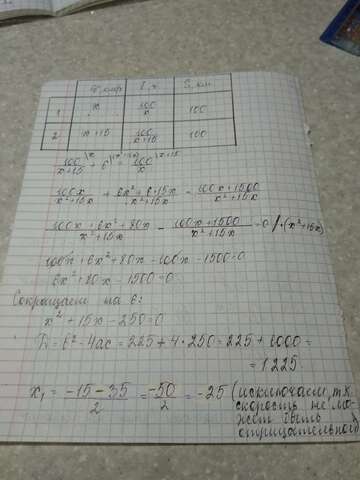 t, ч S, км
1 x 100/x 100
2 x+15 100/x+15 100
100/x+15 + 6 = 100/x
100x/x²+15x + 6x²+6·15x/x²+15x = 100x+1500/x²+15x
100x+6x²+90x/x²+15x - 100x+1500/x²+15x = 0 /·(x²+15x)
100x+6x²+90x-100x-1500=0
6x²+90x-1500=0
Сокращаем на 6:
x²+15x-250=0
D=b²-4ac=225+4·250=225+1000=
=1225
x₁ = -15-35/2 = -50/2 = -25 (исключаем, т.к.
скорость не мо-
жет быть
отрицательной)